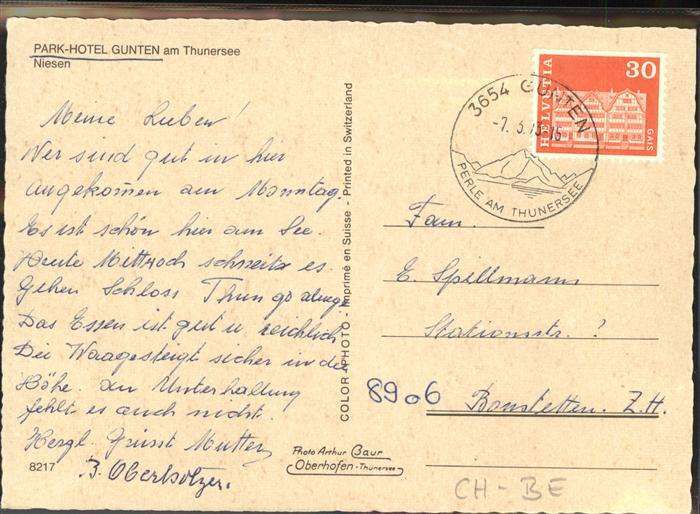 PARK-HOTEL GUNTEN am Thunersee
Niesen
Meine Lieben!
Wer sind gut in hier
angekommen am Monntag.
Es ist schön hier am See.
Heute Mittwoch schneite es.
Gehen Schloss Thun go
Das Essen ist gut u. reichlich
Die Waage steigt sicher in de
Höhe. An Unterhaltung
fehlt es auch nicht.
Herzl. Grüsst Mutter
B. Oberholzer.
8217
COLOR PHOTO - Imprimé en Suisse - Printed in Switzerland
Photo Arthur Baur
Oberhofen-Thunersee
3654 GUNTEN
-7.3.
PERLE AM THUNERSEE
HELVETIA
30
GAIS
Fam.
E. Spellmann
Stationsstr. ?
8906 Bonstetten. Z.H.
CH-BE